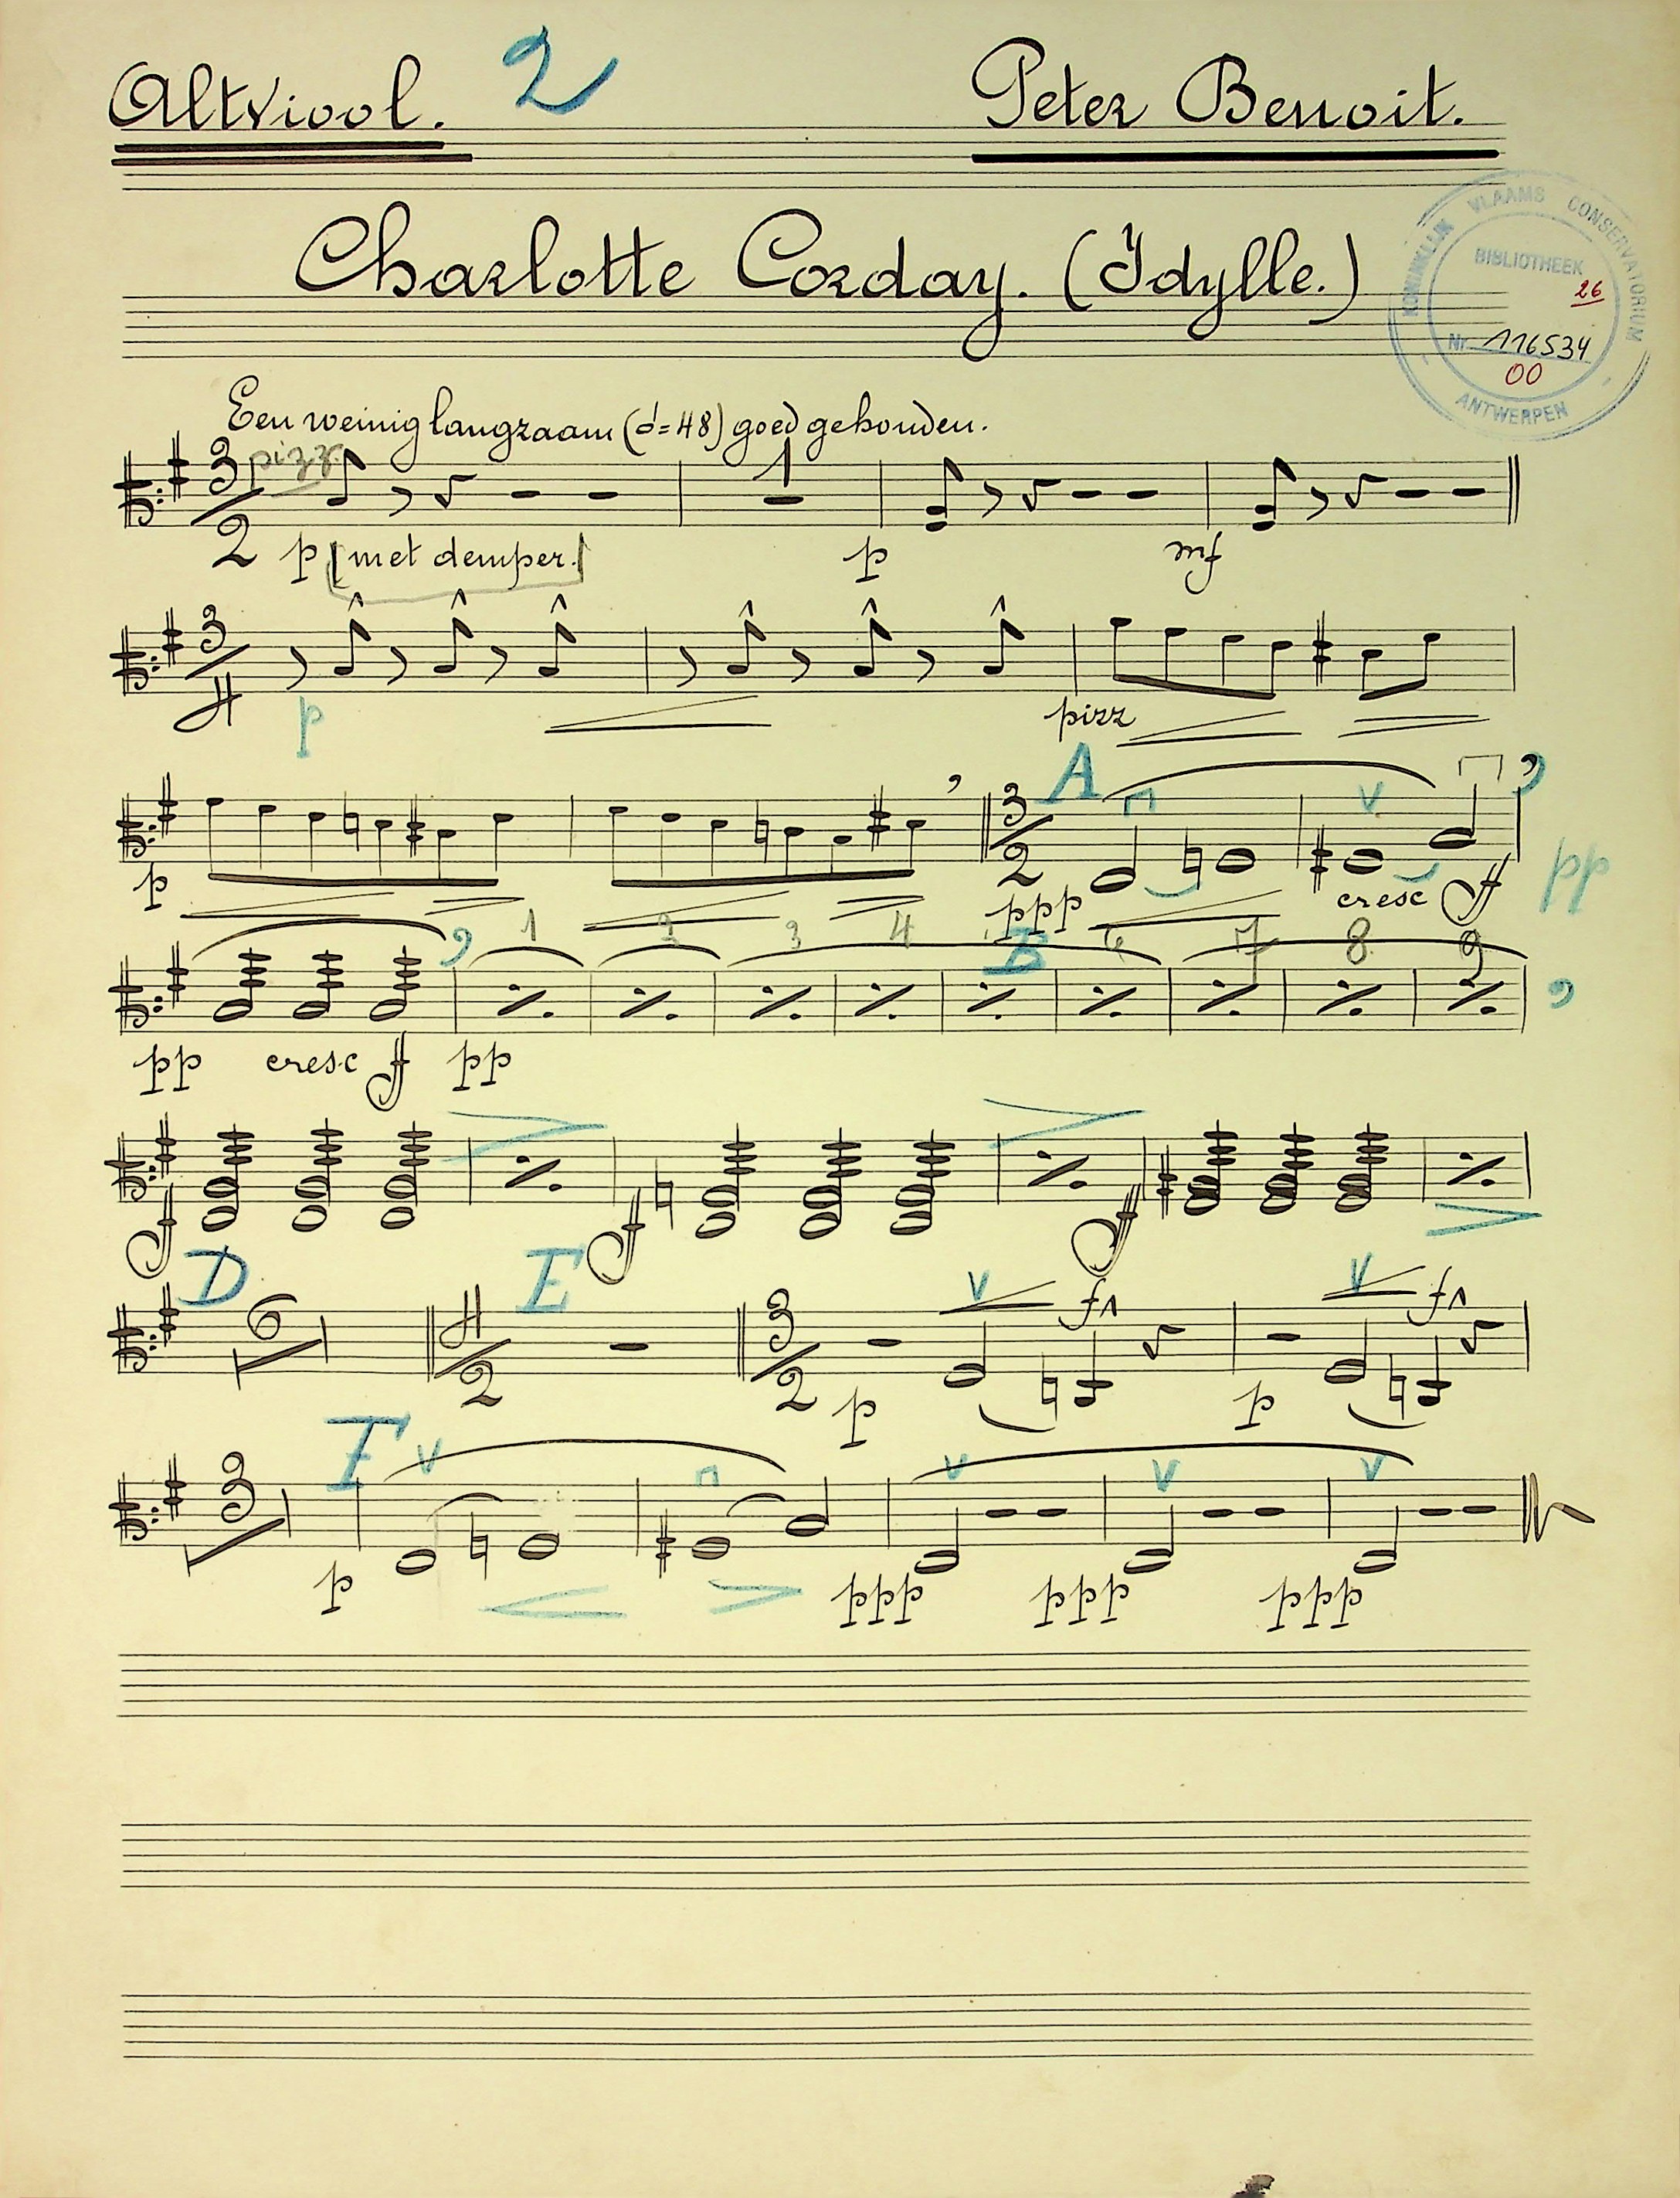 Altviool. 2 Peter Benoit.
Charlotte Corday. (Idylle.)
KONINKLIJK VLAAMS CONSERVATORIUM
BIBLIOTHEEK
26
Nr. 116534
00
ANTWERPEN
Een weinig langzaam (𝅗𝅥=48) goed gehouden.
3 pizz. 1
2 p [met demper.] p mf
3
4 p pizz
A
3
2
p ppp cresc f pp
1 2 3 4 B 6 7 8 9
pp cresc f pp
f f f
D 6 4 E 3 f f
2 2 p p
3 F
p ppp ppp ppp